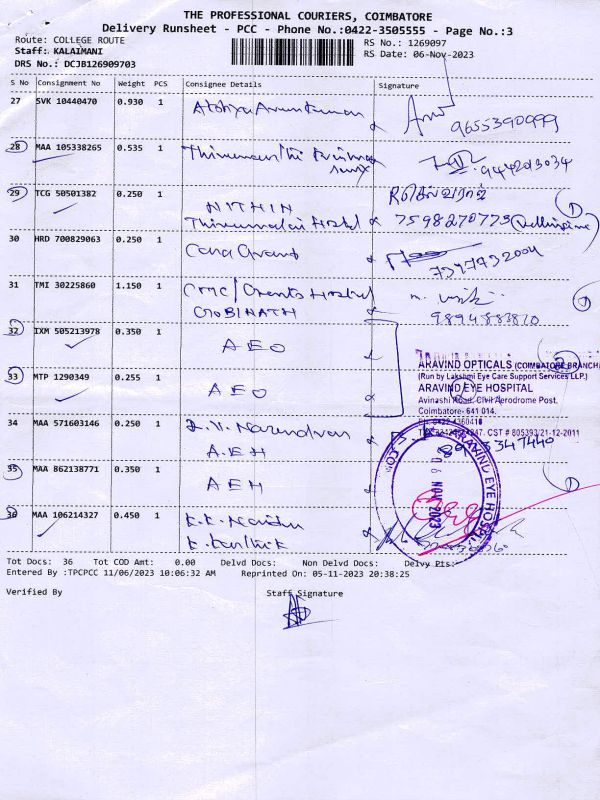 THE PROFESSIONAL COURIERS, COIMBATORE
Delivery Runsheet - PCC - Phone No.:0422-3505555 - Page No.:3
Route: COLLEGE ROUTE
Staff: KALAIMANI
DRS No.: DCJB126909703
RS No.: 1269097
RS Date: 06-Nov-2023
S No Consignment No Weight PCS Consignee Details Signature
27 SVK 10440470 0.930 1
9655390999
28 MAA 105338265 0.535 1
9442013034
29 TCG 50501382 0.250 1 NITHIN
Thirumalai Hostel 7598270773
30 HRD 700829063 0.250 1
7397732004
31 TMI 30225860 1.150 1 CIMC/ Hostel
GOBINATH 9894883820
32 IXM 505213978 0.350 1 AEO
33 MTP 1290349 0.255 1 AEO
ARAVIND OPTICALS (COIMBATORE BRANCH)
(Run by Lakshmi Eye Care Support Services LLP.)
ARAVIND EYE HOSPITAL
Avinashi Road, Civil Aerodrome Post.
Coimbatore- 641 014.
CST # 805393/21-12-2011
34 MAA 571603146 0.250 1 Narendran
A.E.H
35 MAA 862138771 0.350 1 AEH
ARAVIND EYE HOSPITAL
06 NOV 2023
36 MAA 106214327 0.450 1 K.K.
K. Karthik
Tot Docs: 36 Tot COD Amt: 0.00 Delvd Docs: Non Delvd Docs: Delvy Pts:
Entered By :TPCPCC 11/06/2023 10:06:32 AM Reprinted On: 05-11-2023 20:38:25
Verified By Staff Signature